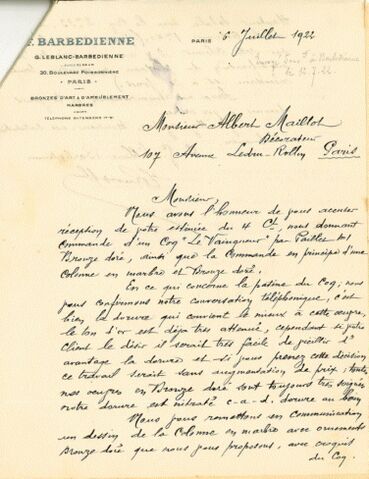 F. BARBEDIENNE
G. LEBLANC-BARBEDIENNE
30, BOULEVARD POISSONNIÈRE
PARIS
BRONZES D'ART & D'AMEUBLEMENT
MARBRES
TÉLÉPHONE GUTENBERG
PARIS 6 Juillet 1922
Monsieur Albert Maillot
Décorateur
107 Avenue Ledru-Rollin Paris
Monsieur,
Nous avons l'honneur de vous accuser
réception de votre estimée du 4 Ct, nous donnant
commande d'un Coq "Le Vainqueur" par Paillet
Bronze doré, ainsi que la Commande en principe d'une
Colonne en marbre et Bronze doré.
En ce qui concerne la patine du Coq, nous
vous confirmons notre conversation téléphonique, c'est
bien la dorure qui convient le mieux à cette œuvre,
le ton d'or est déjà très attenué, cependant si votre
client le désir il serait très facile de vieillir d'
avantage la dorure et si vous prenez cette décision
ce travail serait sans augmentation de prix; toutes
nos œuvres en Bronze doré sont toujours très soignées
notre dorure est c-à-d. dorure au bain
Nous vous remettons en Communication
un dessin de la Colonne en marbre avec ornements
Bronze doré que nous vous proposons, avec croquis
du Coq.